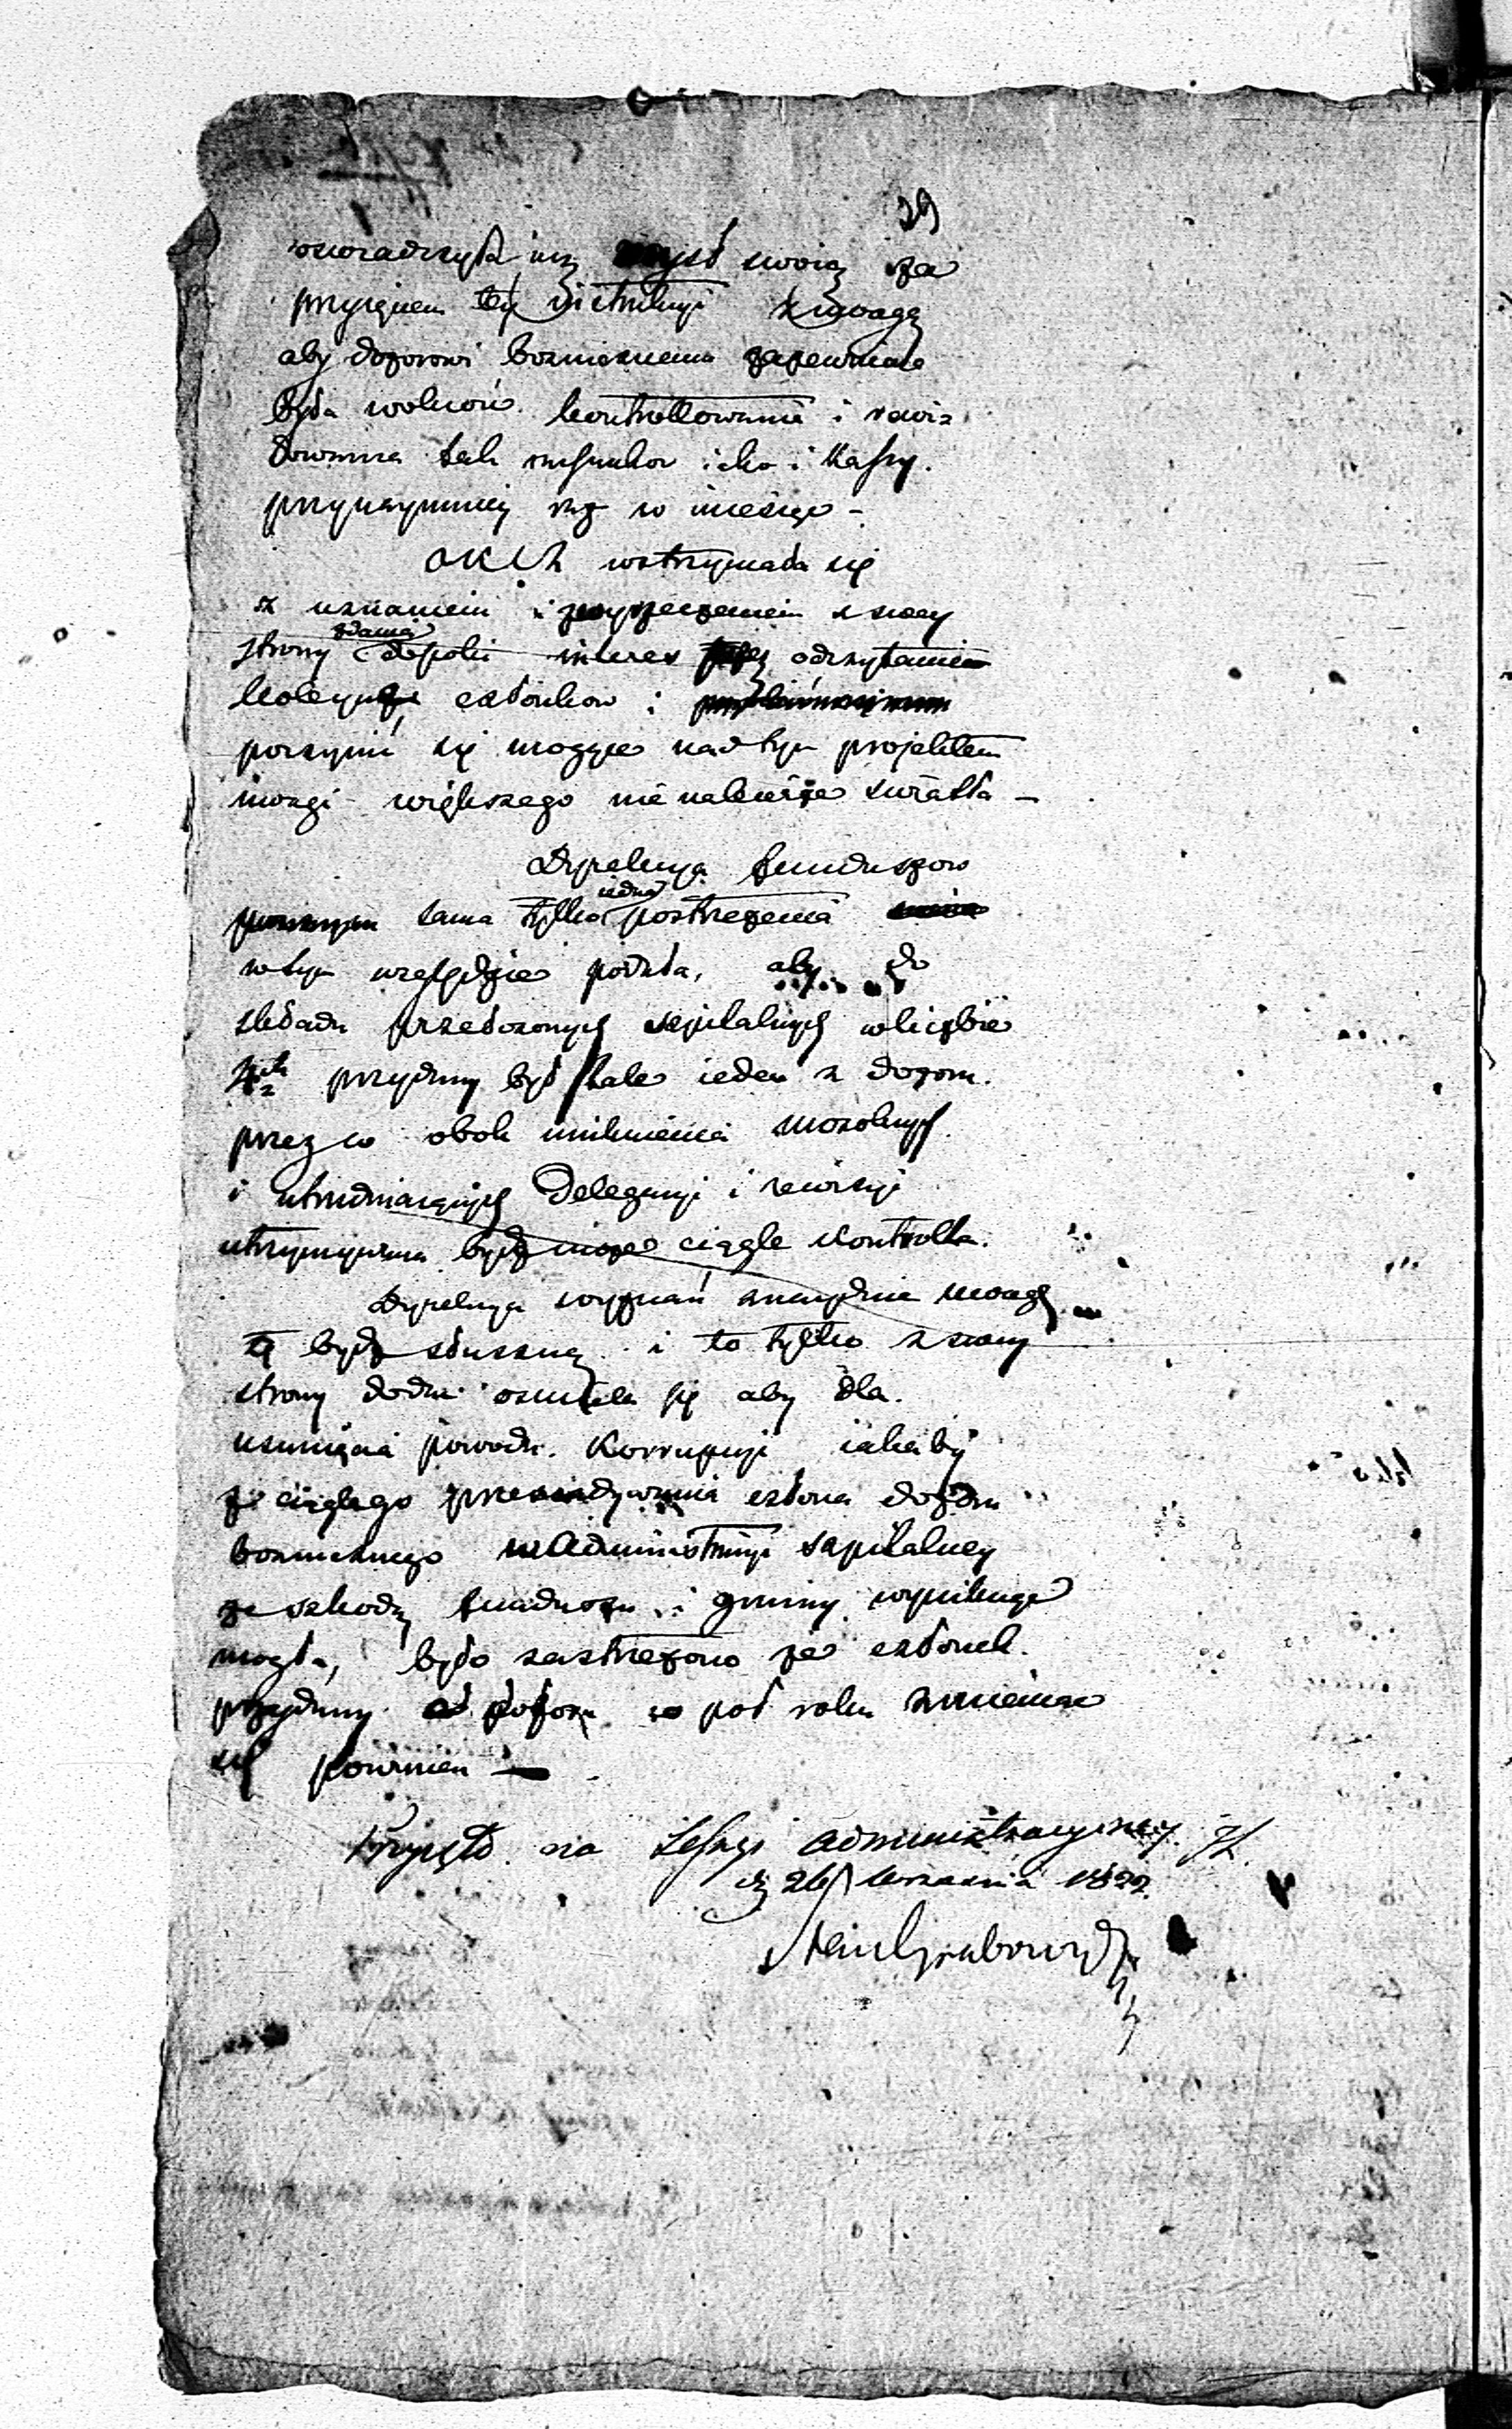 39
oswiadczyła iuż myśl swoią za
przyięciem tey instrukcyi z uwagą
aby dozorowi bożniczemu zapewniona
była wolność kontrollowania i rewi-
dowania tak rachunkow iako i Kassy
przynaymniey raz w miesiąc -
wstrzymała się
z uznaniem i z swey
strony zdania dopóki interes odczytaniem
członkow i
poczynić się mogące nad tym projektem
uwagi większego nie nabierze swiatła -
Dyrekcya funduszow
sama tylko iedno postrzeżenia
w tym względzie podała, aby do
składu przełożonych szpitalnych w liczbie
przydany był stale ieden z dozoru
przez co obok uniknienia mozolnych
i utrudniaiących Delegacyi i rewizyi
utrzymywana bydź może ciągle Kontrolla.
Dyrekcya wyznań znayduie uwagę
tę bydź słuszną i to tylko z swey
strony dodać osmiela się aby dla
usunięcia powodu Korrupcyi iakaby
z ciągłego przesiadywania człona dozoru
bożniczego w Administracyi szpitalney
ze szkodą funduszu i gminy wyniknąć
mogła, było zastrzeżono że członek
przydany od dozoru co pół roku zmieniać
się powinien —
Przyięto na Sessyi Administracyiney
d. 26 Września 1822
Stan Grabowski